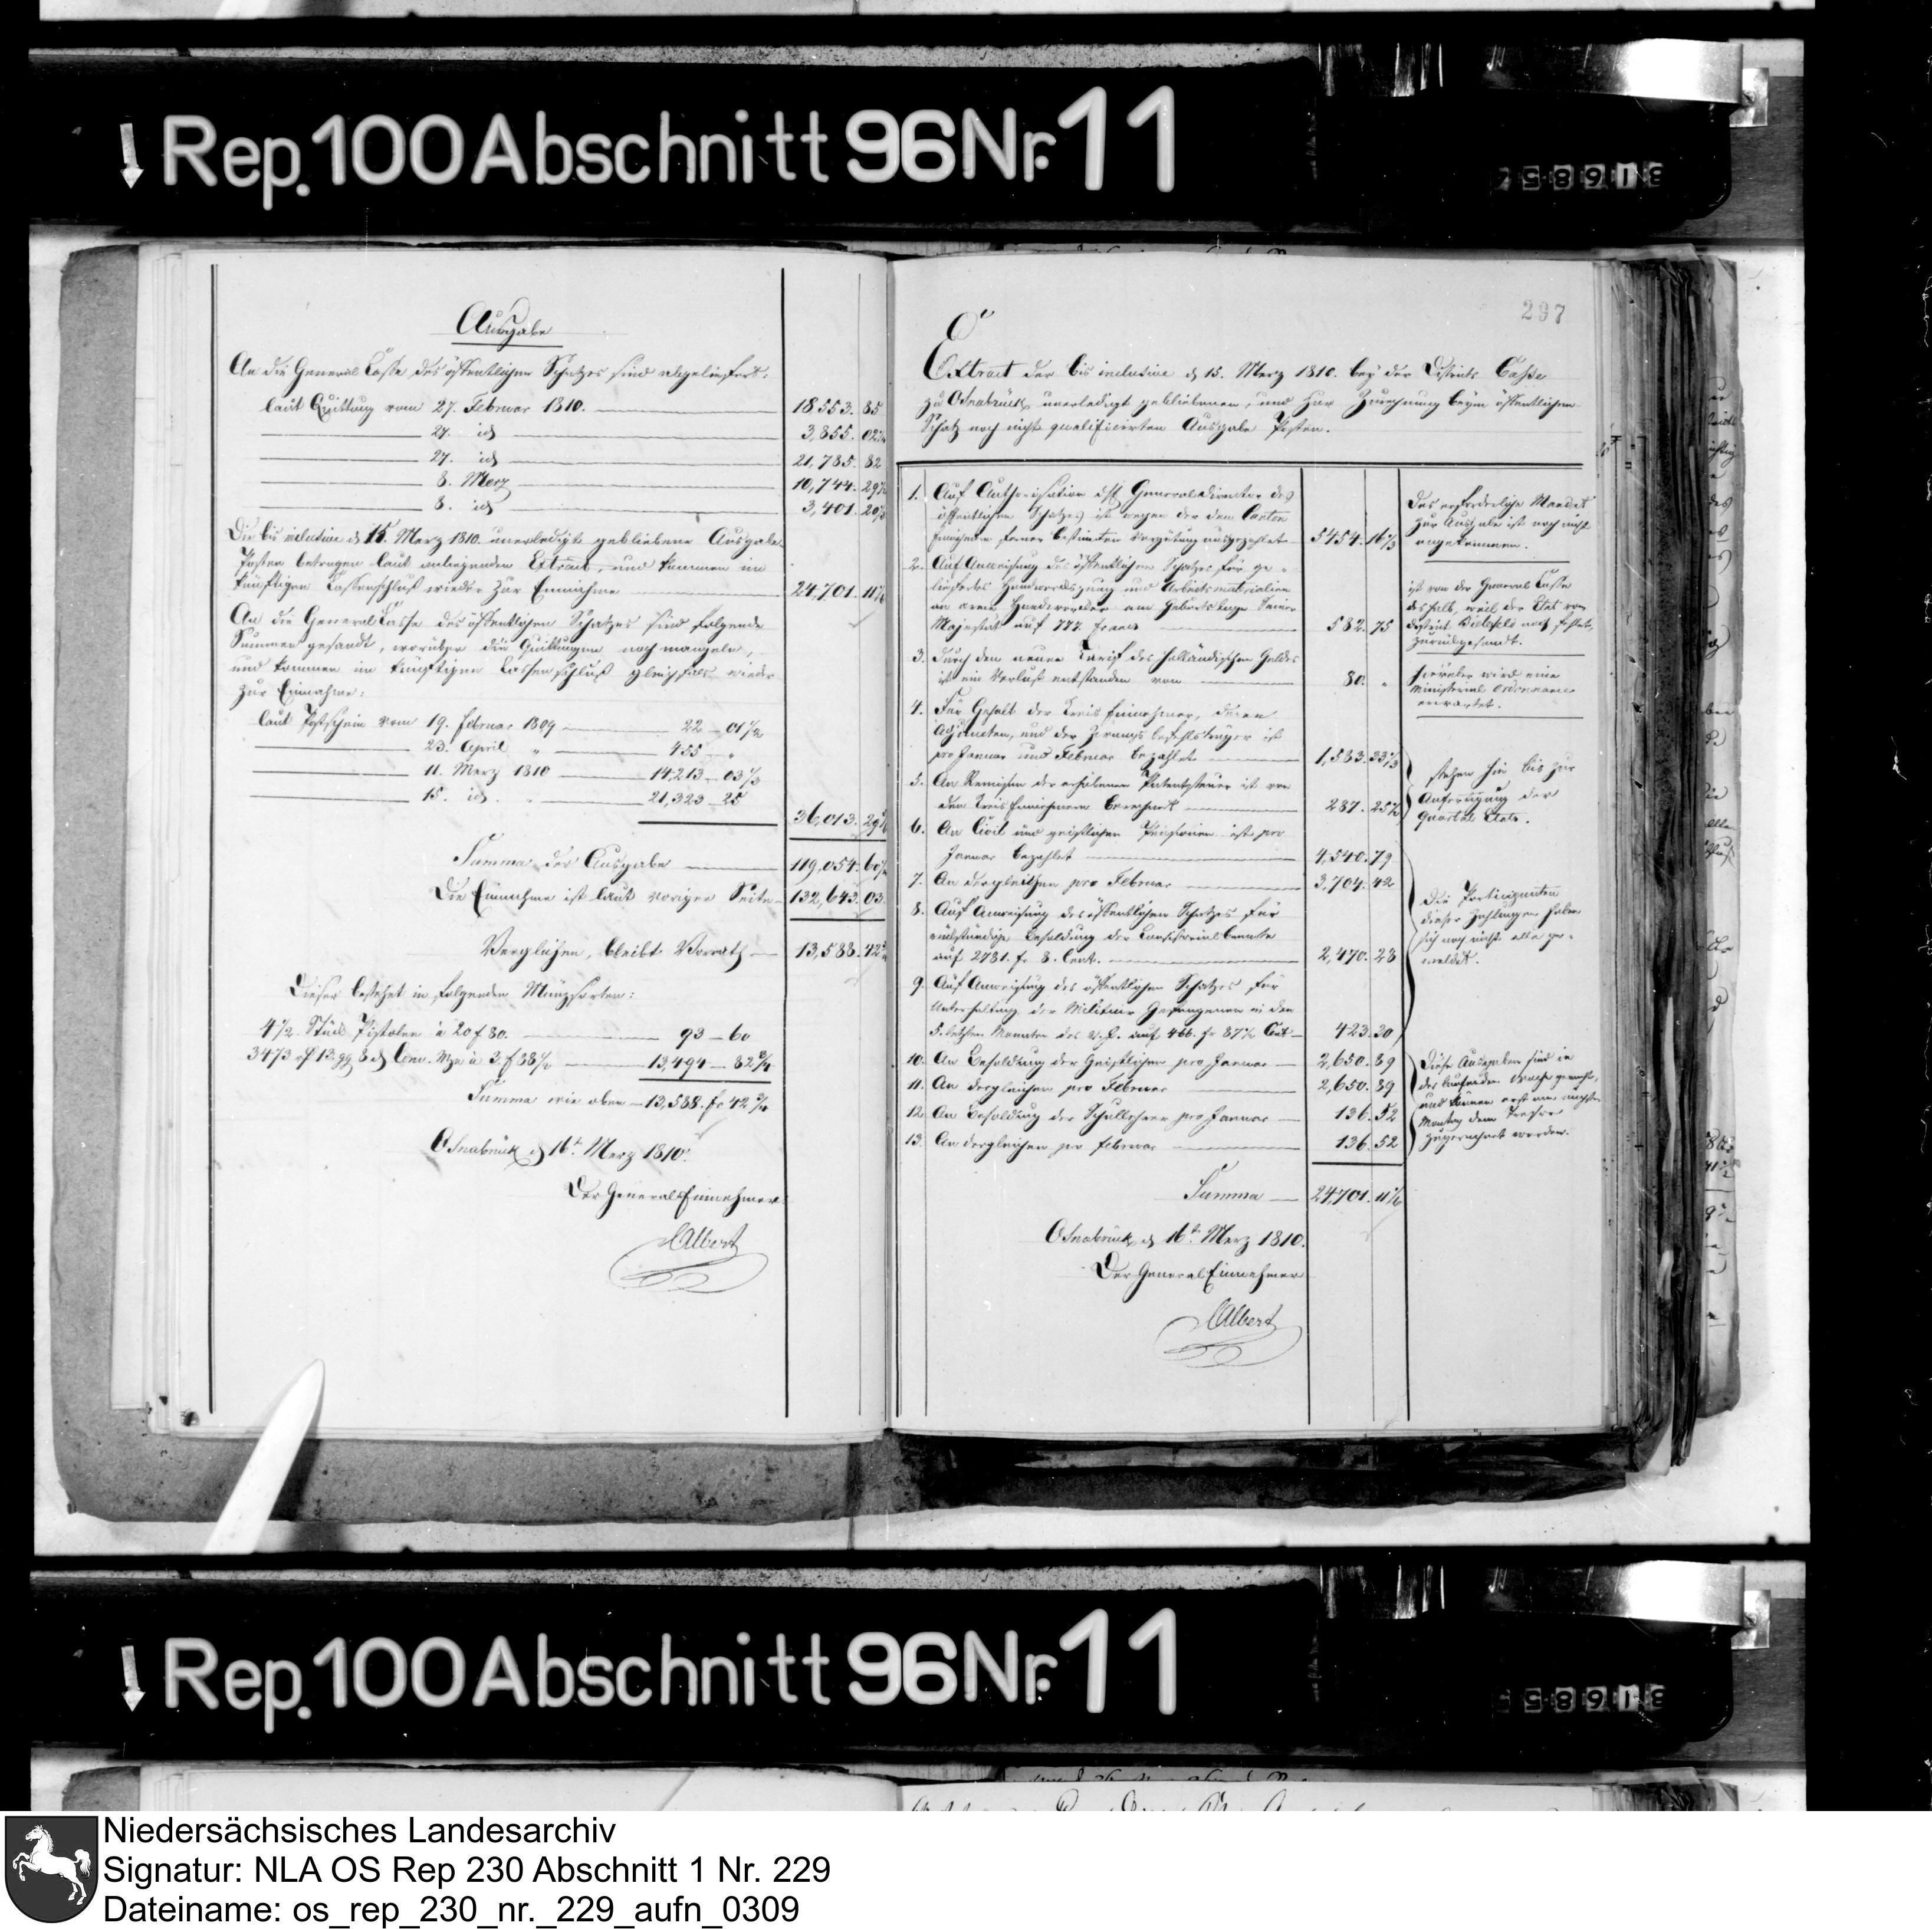 Rep. 100 Abschnitt 96 Nr. 11
Ausgabe
An die General Casse des öffentlichen Schatzes sind abgeliefert:
laut Quittung vom 27. Februar 1810. 18553. 85
27. id 3,855. 02
27. id 21,785. 82
8. Merz 10,744. 29
8. id 3,401. 20
Die bis inclusive d 15. Merz 1810 unerledigte gebliebene Ausgabe
Posten betragen laut anliegenden Extract, und kommen im
künftigen Cassenschluß wieder zur Einnahme 24,701. 11 1/6
An die General Casse des öffentlichen Schatzes sind folgende
Summen gesandt, worüber die Quittungen noch mangeln,
und kommen im künftigen Cassenschluß gleichfals wieder
zur Einnahme:
laut Postschein vom 19. Februar 1809 22 - 01 1/2
23. April " 455 - "
11. Merz 1810 14,213 - 03 1/3
15. id. " 21,323 - 25
36,013. 29
Summa der Ausgabe 119,054. 60
Die Einnahme ist laut voriger Seite 132,643. 03
Verglichen, bleibt Vorrath 13,588. 42
Dieser bestehet in folgenden Münzsorten:
4 1/2 Stück Pistolen à 20 f 80. 93 - 60
3473 13 gg 8 d Conv. Mze à 3 f 88 1/2 13,494 - 82 3/4
Summa wie oben - 13,588. fr 42 3/4
Osnabrück d 16t Merz 1810.
Der General Einnehmer
Albert
297
Extract der bis inclusive d 15. Merz 1810. bey der Districts Casse
zu Osnabrück unerledigt gebliebenen, und zur Zurechnung beym öffentlichen
Schatz noch nicht qualificirten Ausgabe Posten.
1. Auf Authorisation des General Director des
öffentlichen Schatzes ist wegen der dem Canton
ferner bestimten Vergütung ausgezahlt 5454. 16 2/3
Das erforderliche Mandat
zur Ausgabe ist noch nicht
angekommen.
2. Auf Anweisung des öffentlichen Schatzes für ge-
liefertes Handwerkszeug und Arbeitsmaterialien
an arme Handwerker am Geburtstage Seiner
Majestät auf 777 francs 582. 75
ist von der General Casse
deshalb, weil der Etat vom
District Bielefeld noch fehlet,
zurückgesandt.
3. Durch den neuen Tarif des holländischen Geldes
ist ein Verlust entstanden von 80. "
hierüber wird eine
Ministerial Ordonnance
erwartet.
4. Für Gehalt der Kreis Einnehmer, deren
Adjuncten, und der Zwangsbefehlsträger ist
pro Januar und Februar bezahlt 1,583. 33 1/3
5. An Remisen der erhobenen Patentsteuer ist von
den Kreis Einnehmern berechnet 287. 25 1/2
stehen hier bis zur
Anfertigung der
Quartal Etats.
6. An Civil und geistlichen Pensionen ist pro
Januar bezahlet 4,540. 79
7. An dergleichen pro Februar 3,704. 42
8. Auf Anweisung des öffentlichen Schatzes für
rückständige Besoldung der Consistorialbeamte
auf 2781. fr 8. Cent. 2,470. 28
9. Auf Anweisung des öffentlichen Schatzes für
Unterhaltung der Militair Gefangenen in den
5. letzten Monaten des v. J. auf 466. fr 87 1/2 Cent 423. 30
Die Participanten
dieser Zahlungen haben
sich noch nicht alle ge-
meldet.
10. An Besoldung der Geistlichen pro Januar 2,650. 89
11. An dergleichen pro Februar 2,650. 89
12. An Besoldung der Schullehrer pro Januar 136. 52
13. An dergleichen pro Februar 136. 52
Diese Ausgaben sind in
der laufenden Woche gemacht,
und können erst am nächsten
Montag dem Tresor
zugerechnet werden.
Summa 24,701. 11 1/6
Osnabrück d 16t Merz 1810.
Der General Einnehmer
Albert
Rep. 100 Abschnitt 96 Nr. 11
Niedersächsisches Landesarchiv
Signatur: NLA OS Rep 230 Abschnitt 1 Nr. 229
Dateiname: os_rep_230_nr._229_aufn_0309